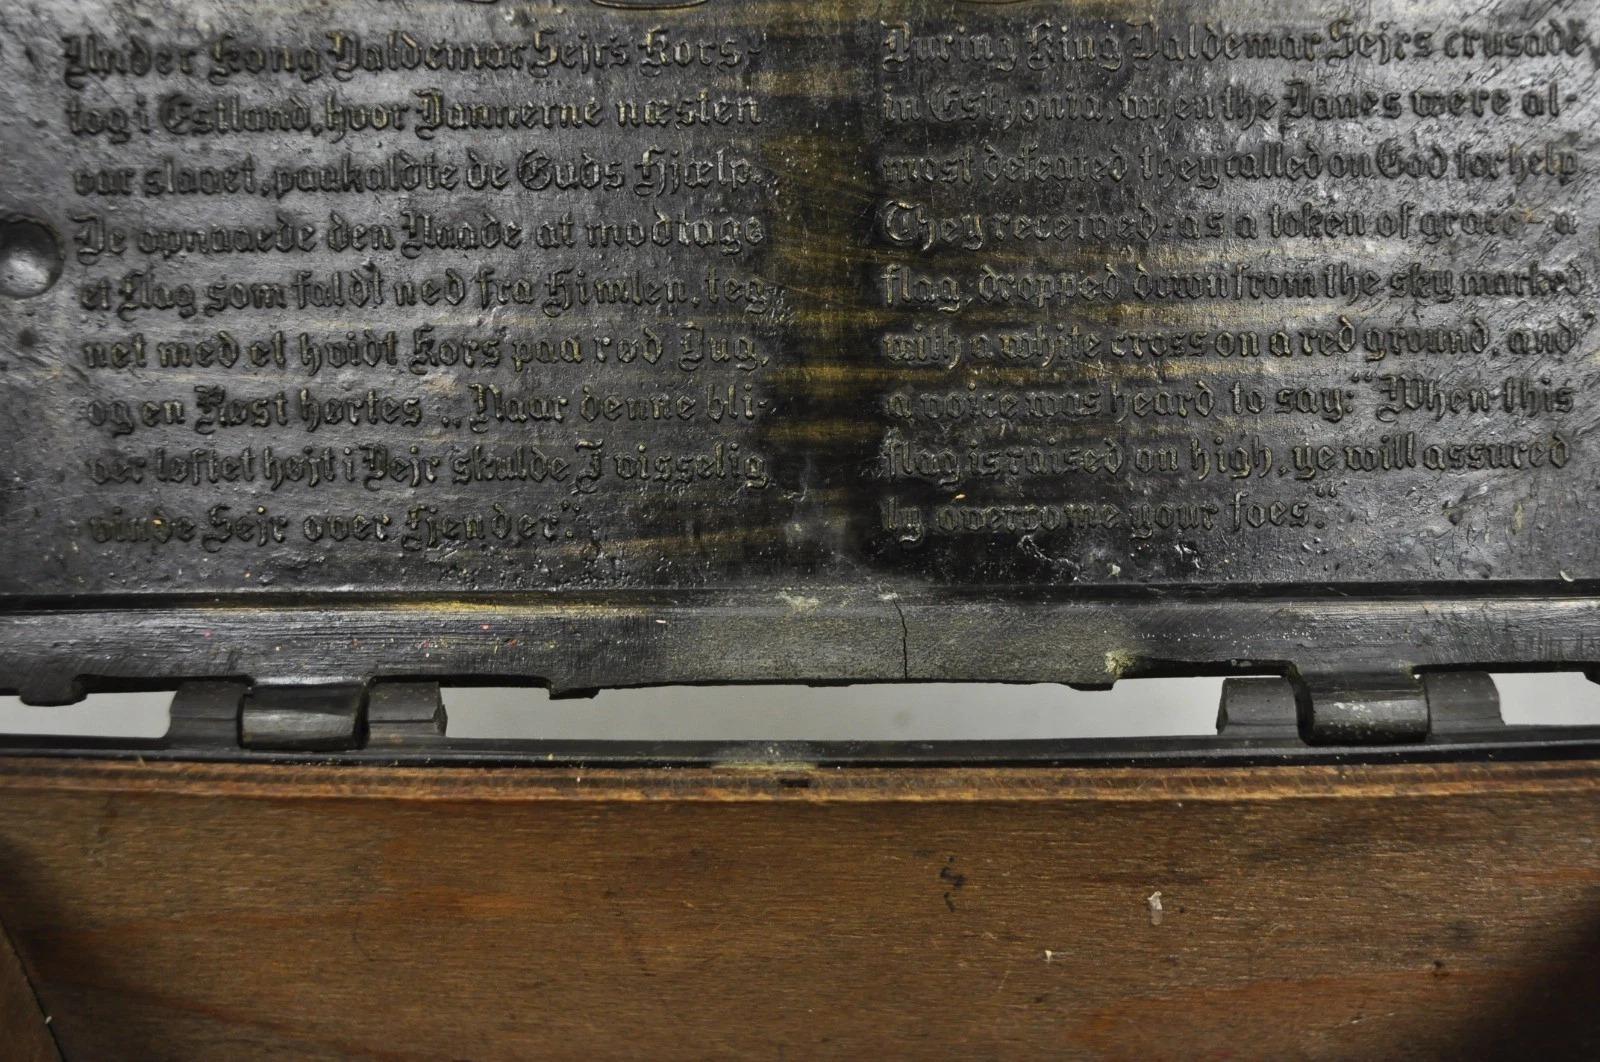 Under Kong Valdemar Sejrs Kors-
tog i Estland, hvor Dannerne næsten
var slaaet, paakaldte de Guds Hjælp.
De opnaaede den Naade at modtage
et Flag som faldt ned fra Himlen, teg
net med et hvidt Kors paa rød Dug,
og en Røst hørtes „Naar denne bli-
ver løftet højt i Vejr skulde I visselig
vinde Sejr over Fjender".
During King Valdemar Sejrs crusade
in Esthonia, when the Danes were al-
most defeated they called on God for help
They received - as a token of grace - a
flag, dropped down from the sky marked
with a white cross on a red ground, and
a voice was heard to say: "When this
flag is raised on high, ye will assured
ly overcome your foes."